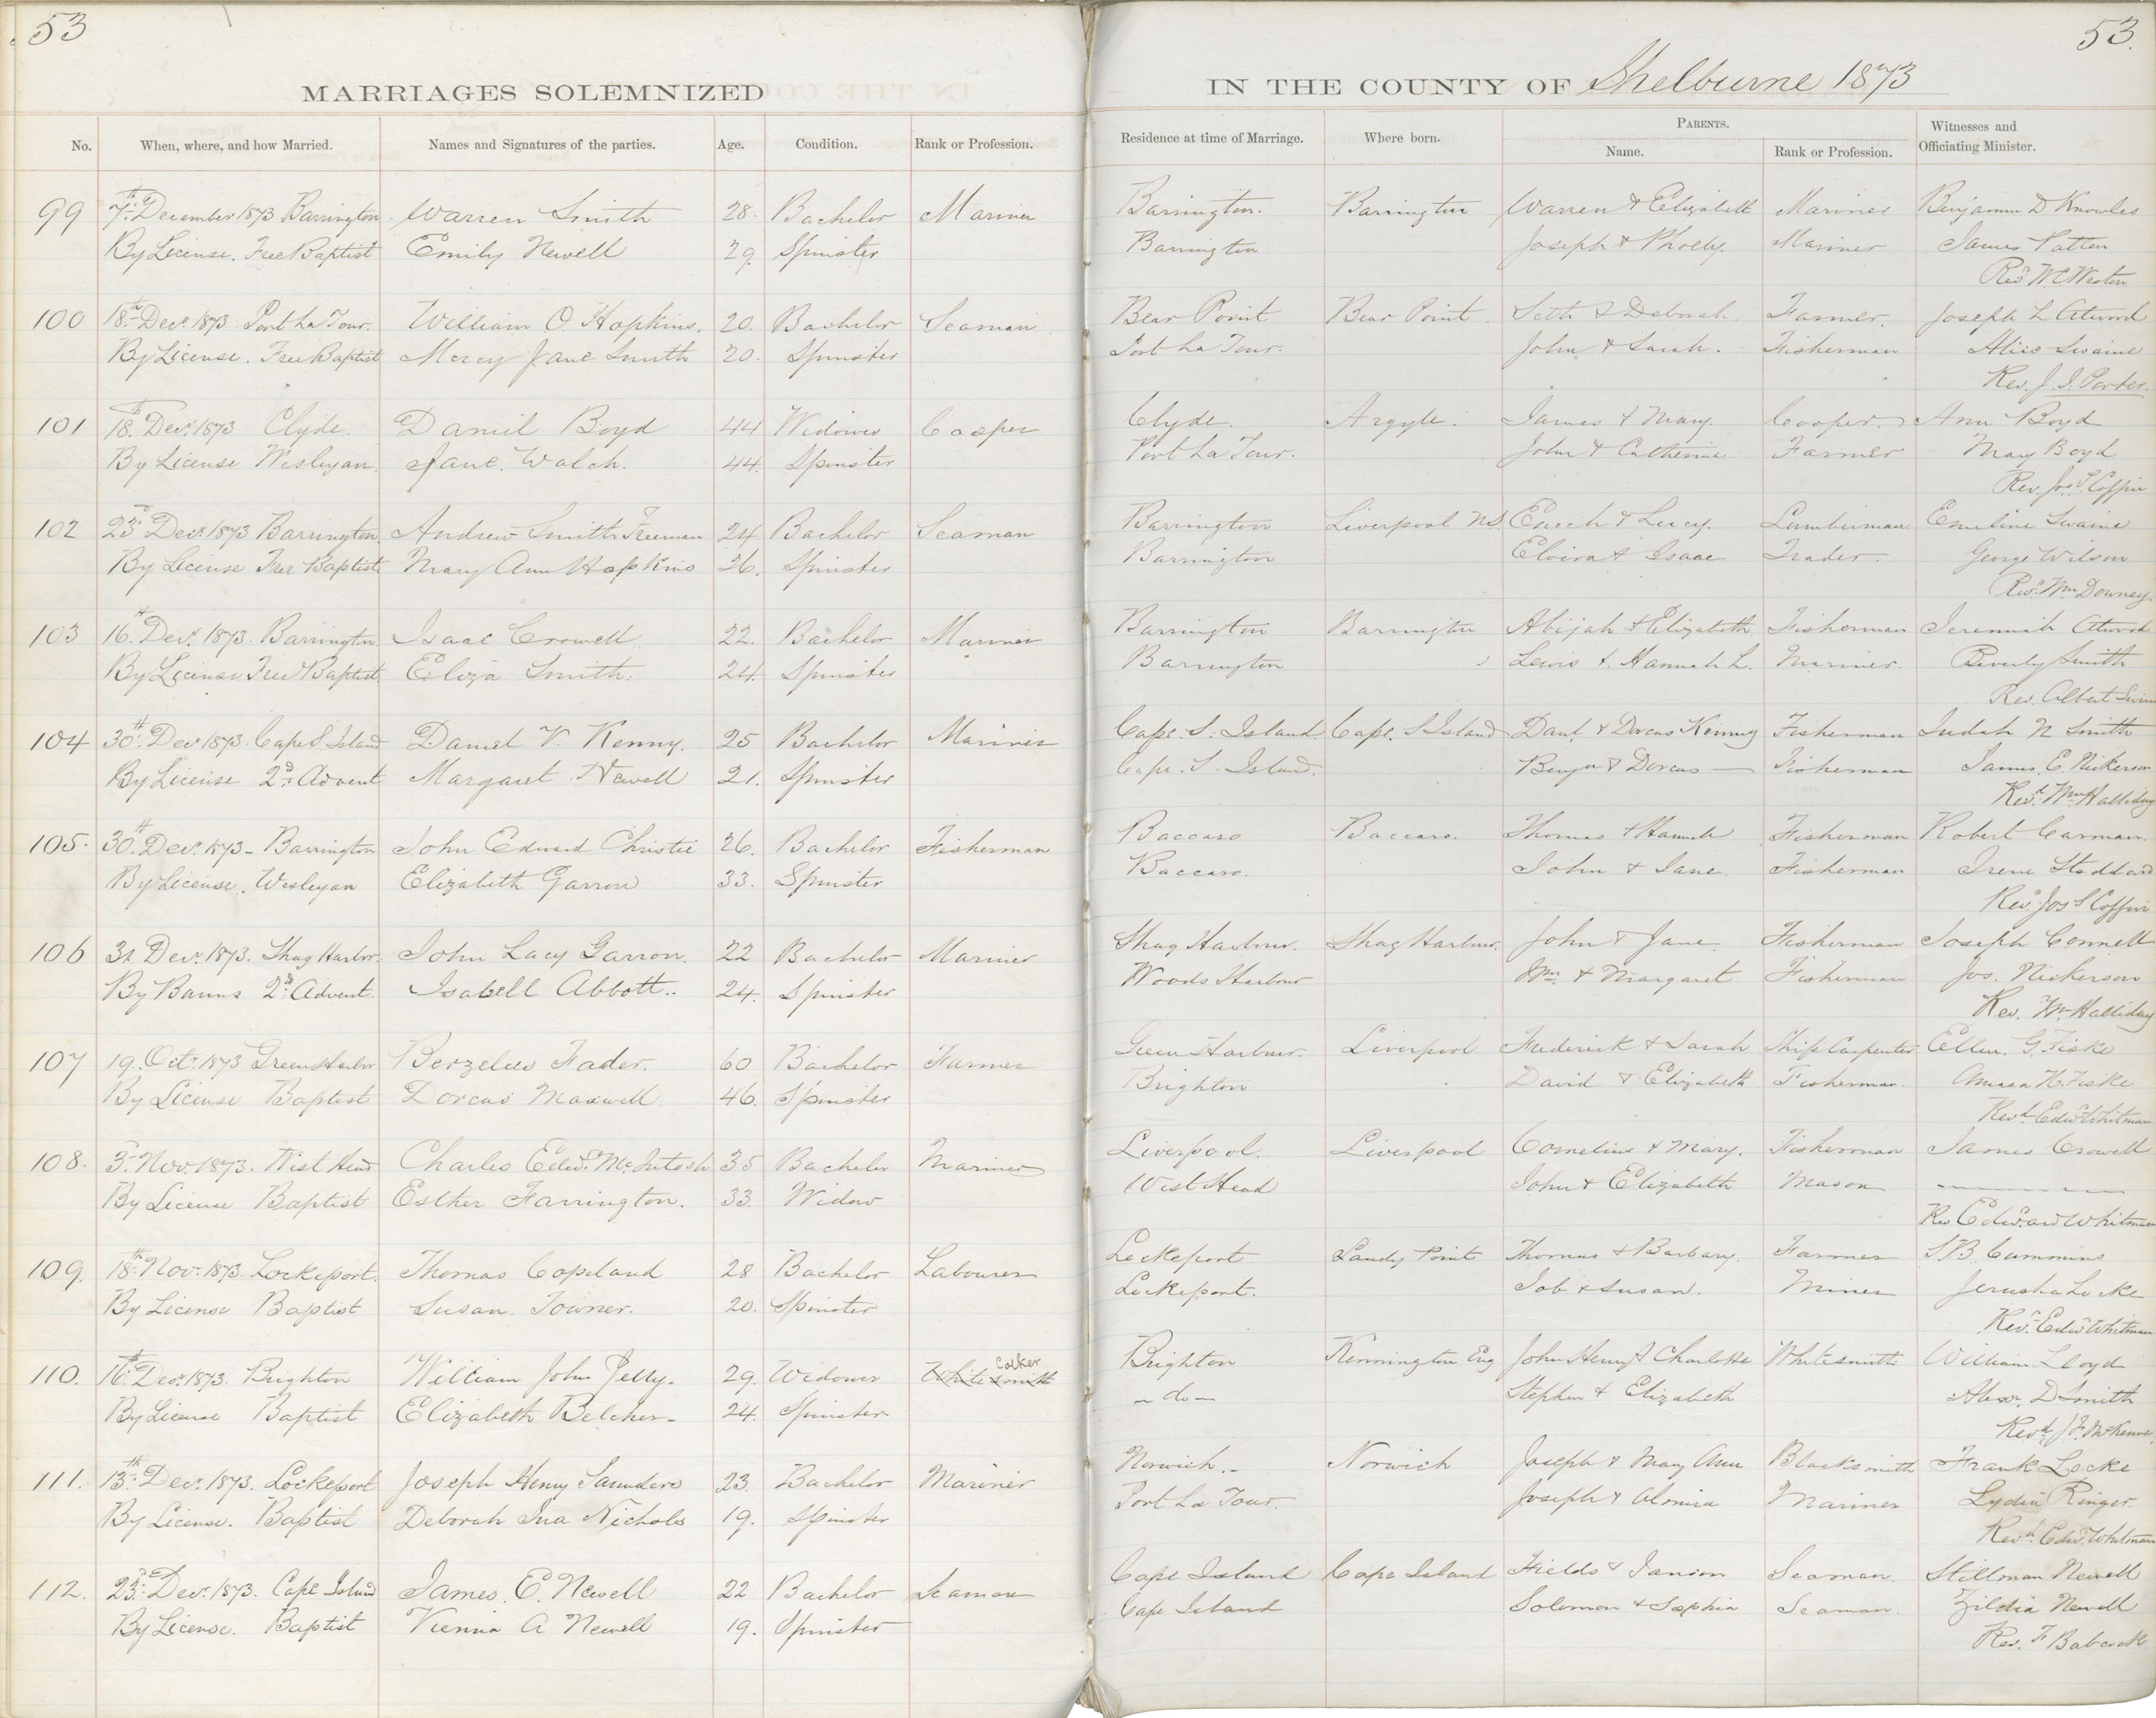 53
53.
MARRIAGES SOLEMNIZED IN THE COUNTY OF Shelburne 1873
No. When, where, and how Married. Names and Signatures of the parties. Age. Condition. Rank or Profession. Residence at time of Marriage. Where born. PARENTS. Name. Rank or Profession. Witnesses and Officiating Minister.
99 7th December 1873 Barrington Warren Smith 28. Bachelor Mariner Barrington. Barrington Warren & Elizabeth Mariner Benjamin D Knowles
By License. Free Baptist Emily Newell 29. Spinster Barrington Joseph & Phoeby. Mariner James Patten
Revd W C Weston
100 18th Decr 1873 Port La Tour. William O. Hopkins. 20. Bachelor Seaman Bear Point Bear Point. Seth & Deborah. Farmer. Joseph L Atwood
By License. Free Baptist Mercy Jane Smith 20. Spinster Port La Tour. John & Sarah. Fisherman Alice Swaine
Rev. J. I. Porter.
101 18th Decr 1873 Clyde. Daniel Boyd 44 Widower Cooper Clyde. Argyle. James & Mary. Cooper. Ann Boyd
By License Wesleyan. Jane. Walch. 44. Spinster Port La Tour. John & Catherine Farmer May Boyd
Rev. Jos S Coffin
102 23d Decr 1873 Barrington Andrew Smith Freeman 24 Bachelor Seaman Barrington Liverpool NS Enoch & Lucy. Lumberman Emeline Swaine
By License Free Baptists Mary Ann Hopkins 26. Spinster Barrington Elvira & Isaac Trader. George Wilson
Revd Wm Downey
103 16th Decr 1873. Barrington Isaac Crowell 22. Bachelor Mariner Barrington Barrington Abijah & Elizabeth Fisherman Jeremiah Atwood
By License Free Baptist. Eliza Smith. 24. Spinster Barrington Lewis & Hannah L. Mariner. Beverly Smith
Rev. Albert Swim
104 30th Decr 1873. Cape S. Island Daniel V. Kenny. 25 Bachelor Mariner Cape. S. Island Cape. S Island Danl & Dorcas Kenney Fisherman Judah N Smith
By License 2d Advent Margaret Newell 21. Spinster Cape. S. Island. Benjn & Dorcas — Fisherman James. E. Nickerson
Revd Wm Halliday
105. 30th Decr 1873 - Barrington John Edward Christie 26. Bachelor Fisherman Baccaro Baccaro. Thomas & Hannah Fisherman Robert Carman.
By License. Wesleyan Elizabeth Garron 33. Spinster Baccaro. John & Jane. Fisherman Irene Stoddard
Revd Jos S Coffin
106 31. Decr 1873. Shag Harbor. John Lacy Garron. 22 Bachelor Mariner Shag Harbour. Shag Harbour. John & Jane. Fisherman Joseph Connell
By Banns 2d Advent. Isabell Abbott.. 24. Spinster Woods Harbour Wm & Margaret Fisherman Jos. Nickerson
Rev. Wm Halliday
107 19. Octr 1873 Green Harbor Berzelus Fader. 60 Bachelor Farmer Green Harbour. Liverpool Frederick & Sarah Ship Carpenter Ellen. G. Fiske
By License Baptist Dorcas Maxwell 46. Spinster Brighton David & Elizabeth Fisherman Amasa H. Fiske
Revd Edwd Whitman
108. 3d Nov 1873. West Head Charles Edwd McIntosh 35 Bachelor Mariner Liverpool. Liverpool Cornelius & Mary. Fisherman James Crowell
By License Baptist Esther Farrington. 33. Widow West Head John & Elizabeth Mason
Rev Edward Whitman
109. 18th Nov. 1873. Lockeport. Thomas Copeland 28 Bachelor Labourer Lockeport Sandy Point Thomas & Barbary. Farmer S. B. Cummins
By License Baptist Susan. Towner. 20. Spinster Lockeport. Job & Susan. Miner Jerusha Locke
Revd Edwd Whitman
110. 16th Decr 1873. Brighton William John Jelly. 29. Widower Whitesmith Calker Brighton Kennington Eng John Henry & Charlotte Whitesmith William Lloyd
By License Baptist Elizabeth Belcher - 24. Spinster - do - Stephen & Elizabeth Alexr. D Smith
Revd J. F. McKenne
111. 13th Decr 1873. Lockeport Joseph Henry Saunders 23. Bachelor Mariner Norwich. - Norwich Joseph & Mary Ann Blacksmith Frank Locke
By License. Baptist Deborah Ina Nichols 19. Spinster Port La Tour. Joseph & Almira Mariner Lydia Ringer.
Revd Edwd Whitman
112. 23d Decr 1873. Cape Island James. E. Newell 22 Bachelor Seaman Cape Island Cape Island Fields & Seaman. Stillman Newell
By License. Baptist Vienna A Newell 19. Spinster Cape Island Solomon & Sophia Seaman. Zildia Newell
Rev. F Babcock